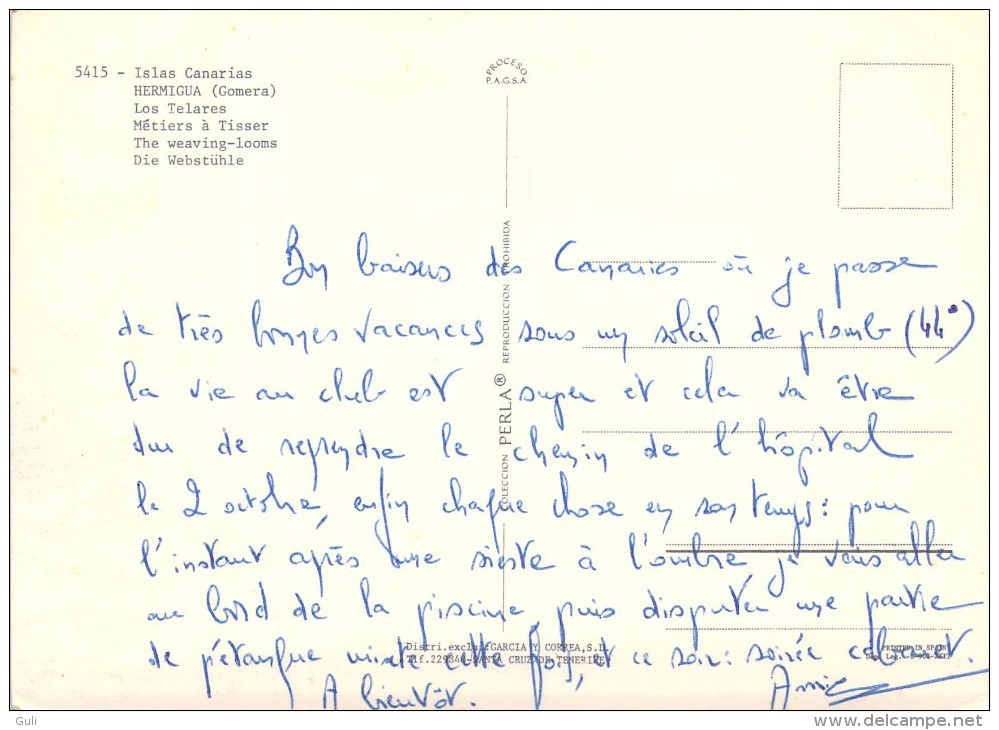 5415 - Islas Canarias
HERMIGUA (Gomera)
Los Telares
Métiers à Tisser
The weaving-looms
Die Webstühle
PROCESO
P.A.G.S.A.
COLECCION PERLA® REPRODUCCION PROHIBIDA
Bons baisers des Canaries où je passe
de très bonnes vacances sous un soleil de plomb (44°)
la vie au club est super et cela va être
dur de reprendre le chemin de l'hôpital
le 2 octobre, enfin chaque chose en son temps : pour
l'instant après une sieste à l'ombre, je vais aller
au bord de la piscine, puis disputer une partie
de pétanque mixte cette fois, et ce soir : soirée cabaret.
A bientôt.
Annie
Distri.exclu. GARCIA Y CORREA, S.L.
Tlf.229840-SANTA CRUZ DE TENERIFE
PRINTED IN SPAIN
Guli
delcampe.net